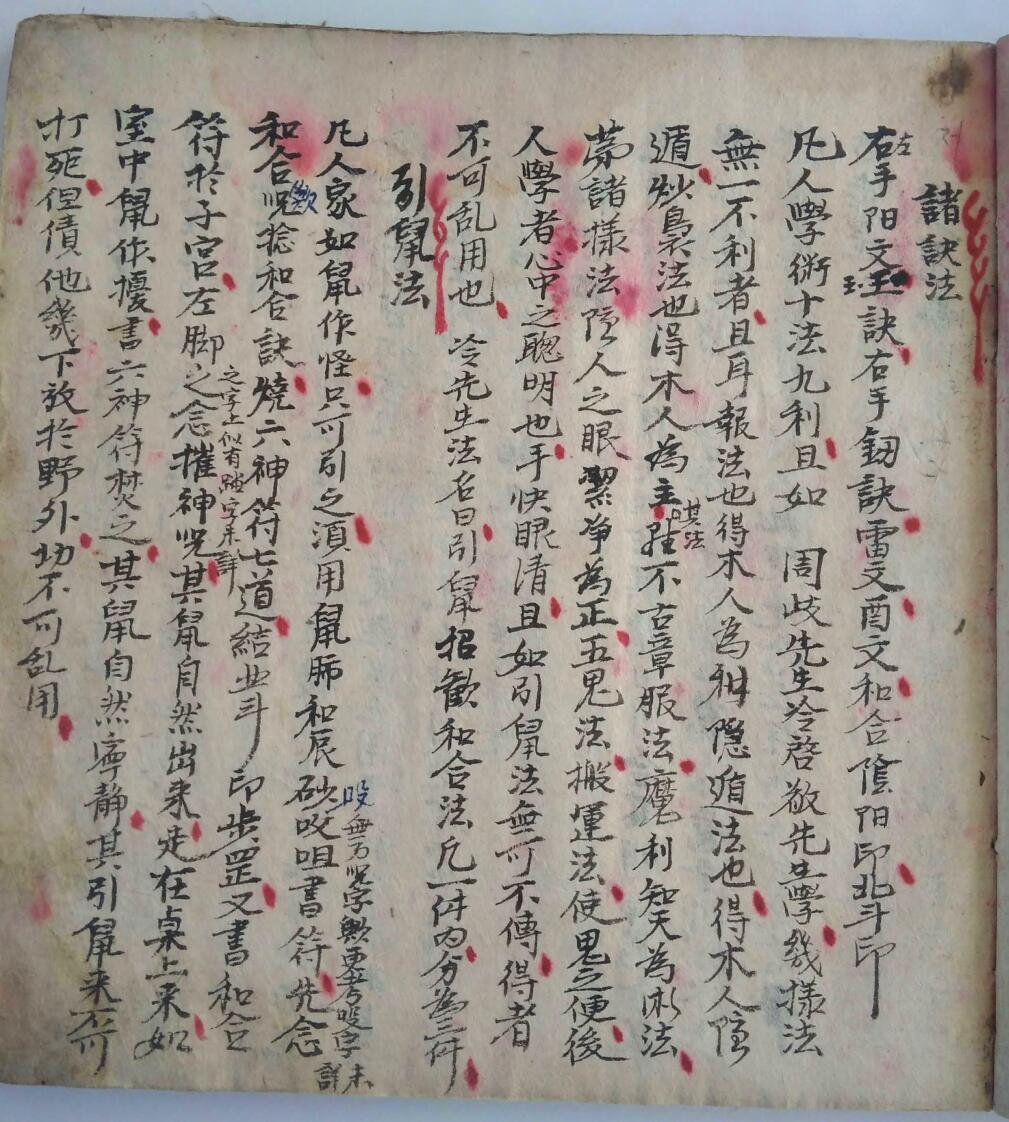 諸訣法
右手阳文玉訣右手劔訣雷文酉文和合陰阳印北斗印
左
凡人學術十法九利且如 周歧先生冷啓敬先生學幾様法
無一不利者且耳報法也得木人為用隐遁法也得木人隐
遁炒梟法也得木人為主 不古章服法魔利知天為法
其法
諸様法隐人之眼潔净為正五鬼法搬運法使鬼之便後
人學者心中之聰明也手快眼清且如引䑕法無可不傳得者
不可乱用也 冷先生法名曰引䑕招歓和合法凡一件内分為三件
引䑕法
凡人家如䑕作怪只可引之湏用䑕肺和辰砂咬咀書符先念
無万呪字歟再考 字未詳
和合呪捻和合訣燒六神符七道結斗印步罡又書和合
歟
符於子宫左脚之念摧神呪其䑕自然出来走在桌上来如
之字上似有踏字未詳
室中䑕作擾書六神符焚之其䑕自然寧静其引䑕来不可
打死但債他幾下放於野外切不可乱用